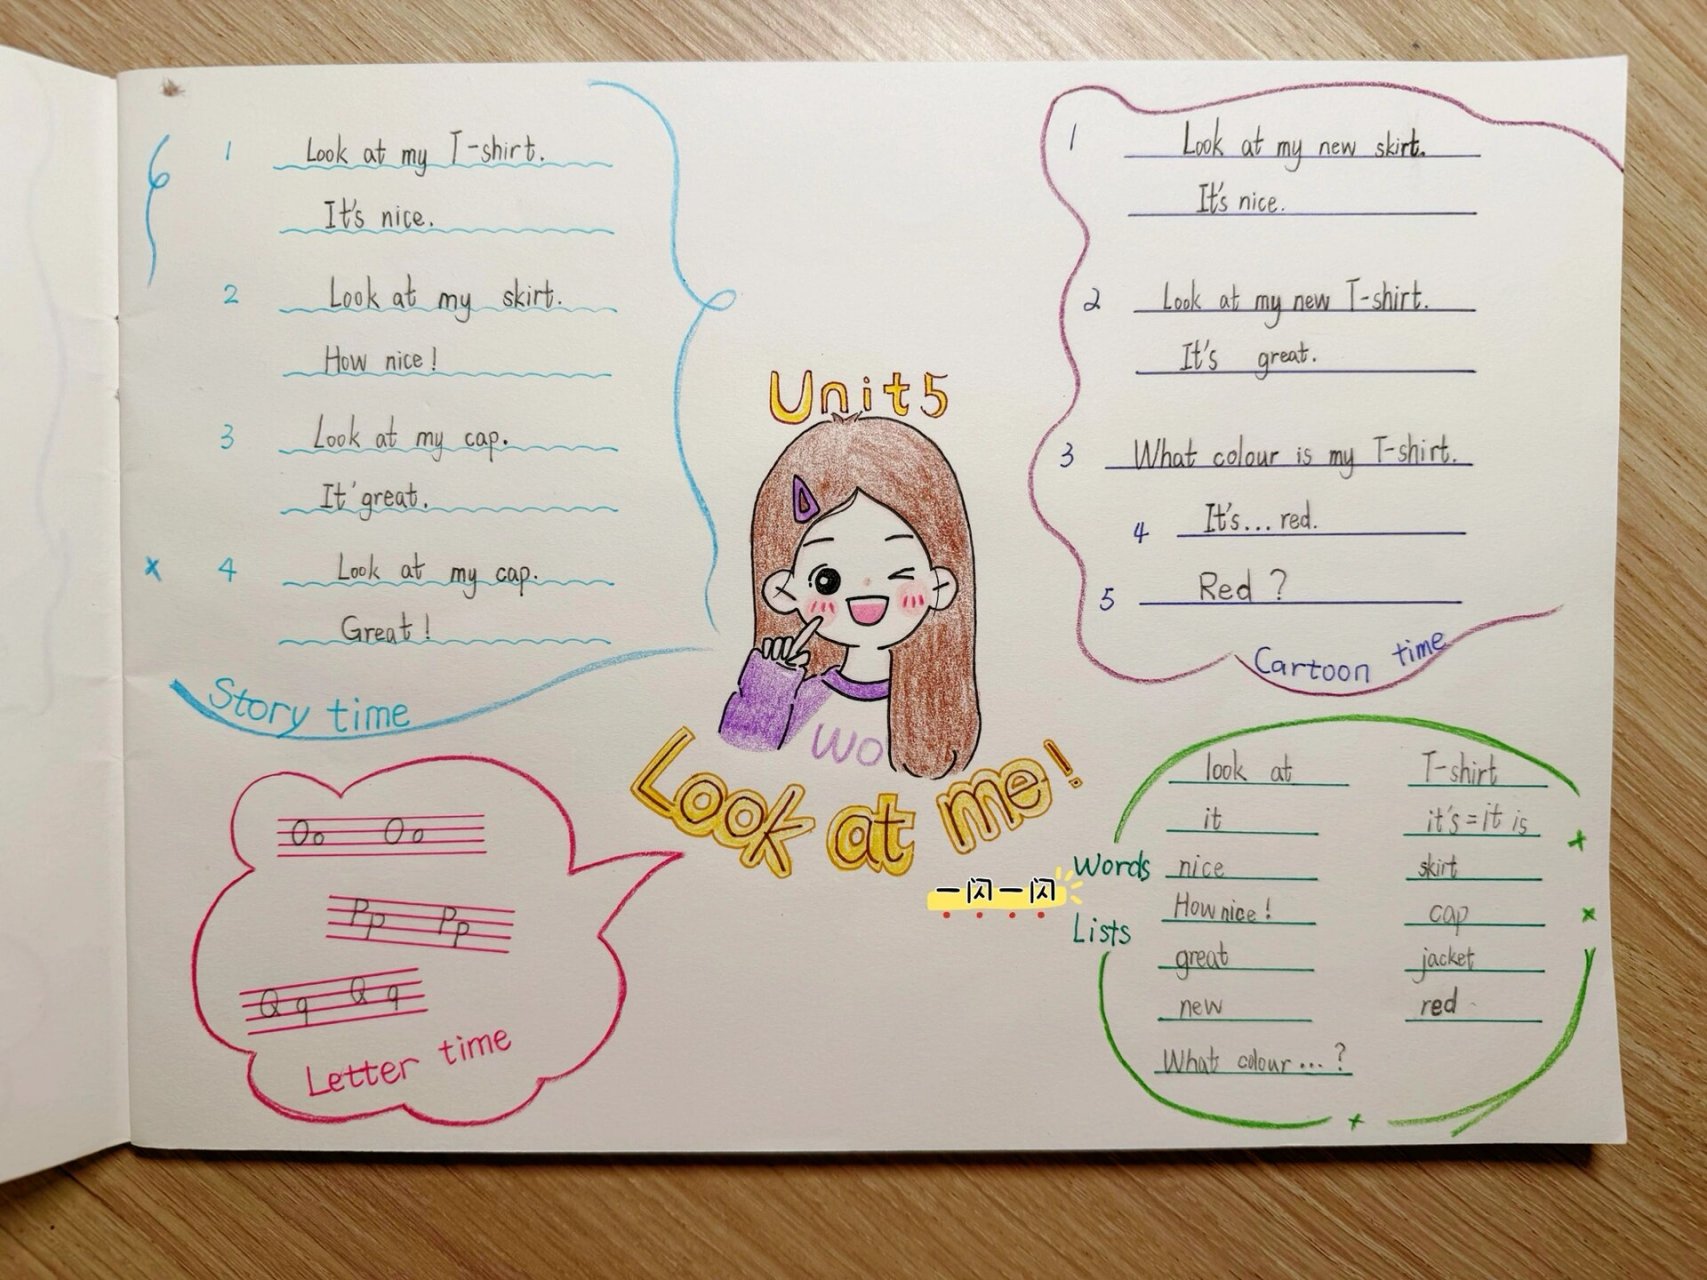 1 Look at my T-shirt.
It's nice.
2 Look at my skirt.
How nice!
3 Look at my cap.
It'great.
4 Look at my cap.
Great!
Story time
Unit5
WO
Look at me!
一闪一闪
1 Look at my new skirt.
It's nice.
2 Look at my new T-shirt.
It's great.
3 What colour is my T-shirt.
4 It's...red.
5 Red ?
Cartoon time
Oo Oo
Pp Pp
Qq Qq
Letter time
Words
Lists
look at T-shirt
it it's=it is
nice skirt
How nice! cap
great jacket
new red
What colour...?